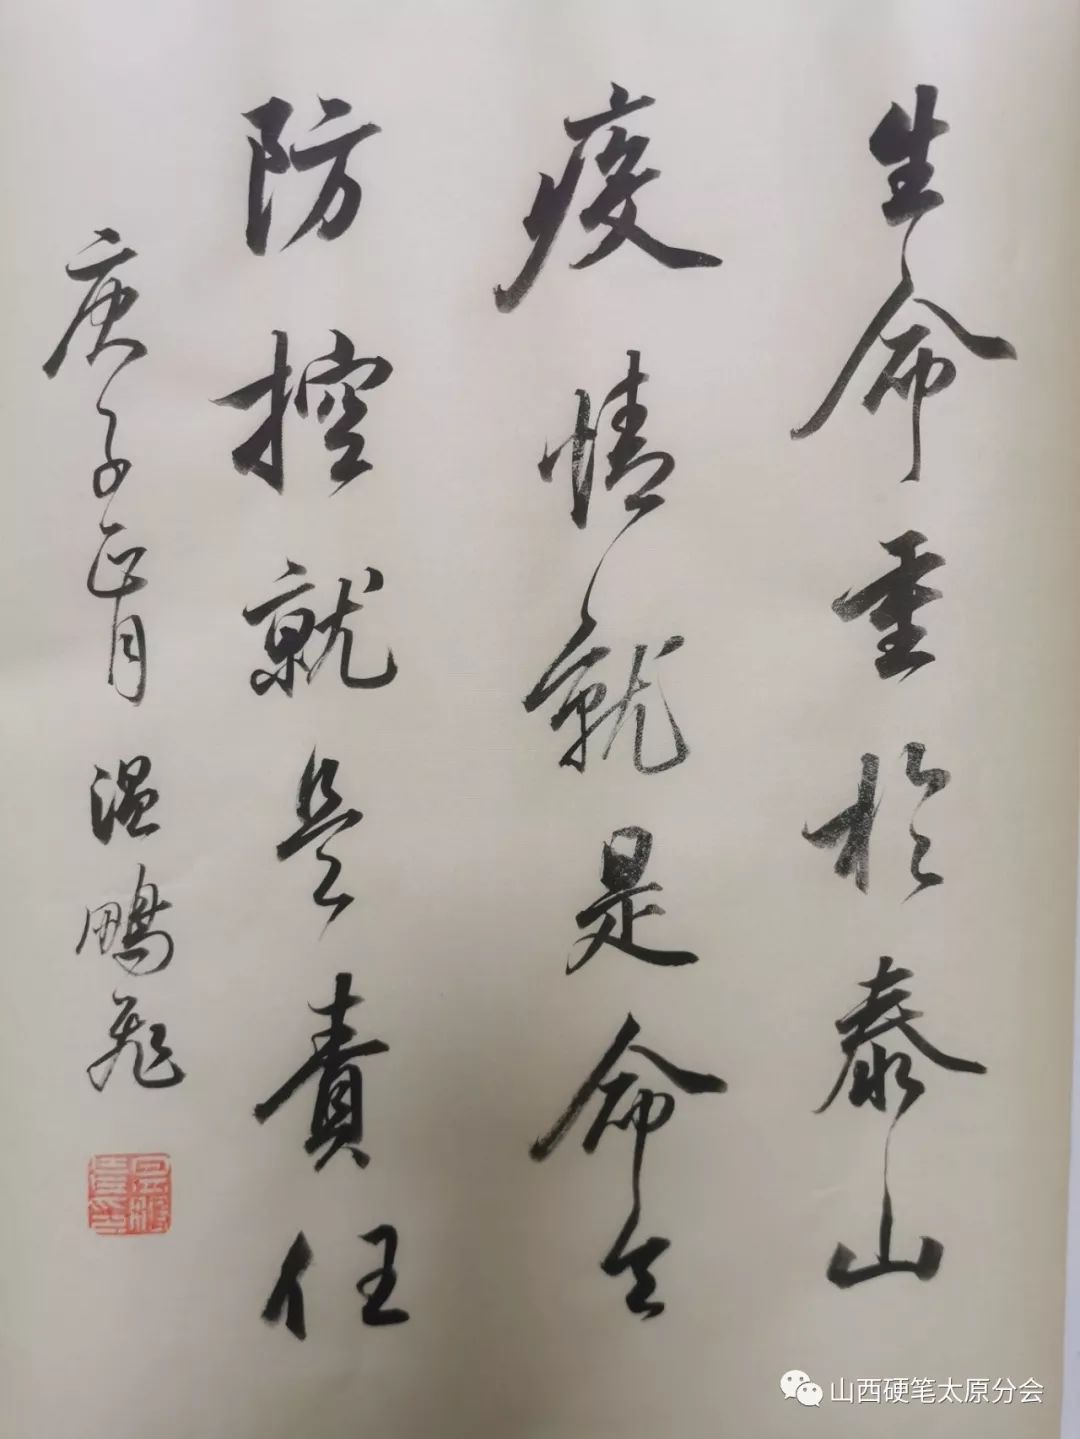 生命重於泰山
疫情就是命令
防控就是責任
庚子正月 温鵬飛
山西硬笔太原分会